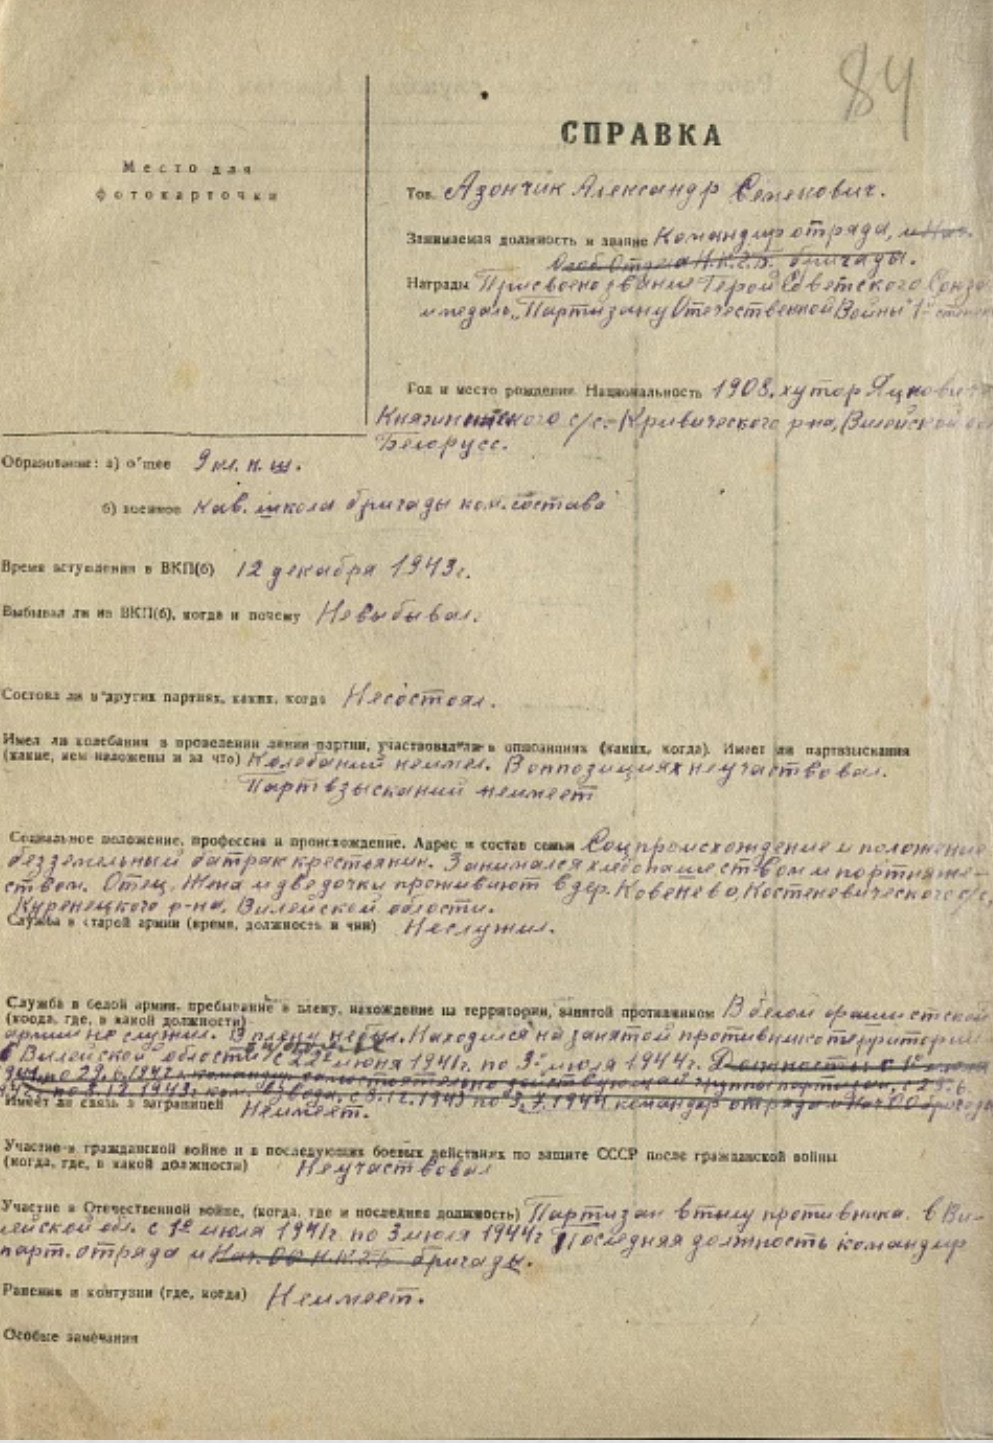 84
СПРАВКА
Место для
фотокарточки
Тов. Азончик Александр Семенович.
Занимаемая должность и звание Командир отряда, и Нач.
Особ. Отдела Н.К.Г.Б. бригады.
Награды Присвоено звание Герой Советского Союза
и медаль „Партизану Отечественной Войны" 1й степени
Год и место рождения. Национальность 1908. хутор
с/с.-Кривического р-на, Вилейской
Белорусс.
Образование: а) общее 9 кл. н. ш.
б) военное Кав. школа бригады ком. состава
Время вступления в ВКП(б) 12 декабря 1943г.
Выбывал ли из ВКП(б), когда и почему Невыбывал.
Состоял ли в других партиях, каких, когда Несостоял.
Имел ли колебания в проведении линии партии, участвовал ли в оппозициях (каких, когда). Имеет ли партвзыскания
(какие, кем наложены и за что) Колебаний неимел. В оппозициях неучаствовал.
Партвзысканий неимеет
Социальное положение, профессия и происхождение. Адрес и состав семьи Соцпроисхождение и положение
безземельный батрак крестьянин. Занимался хлебопашеством и портняже-
ством. Отец, Жена и две дочки проживают в дер. Ковенево, Костеневического с/с,
Куренецкого р-на, Вилейской области.
Служба в старой армии (время, должность и чин) Неслужил.
Служба в белой армии, пребывание в плену, нахождение на территории, занятой противником В белой фашистской
(когда, где, в какой должности)
армии не служил. В плену небыл. Находился на занятой противником территории
в Вилейской области с июня 1941г. по 3е июля 1944г. Должность: с 1е июля
по 29.6.1942 командир самостоятельно действующей группы партизан, с 29.6.
42 г. по 3.12.1943г. ком. взвода, с 3.12.1943 по 3.7.1944 командир отряда и Нач ОО бригады
Имеет ли связь з заграницей Неимеет.
Участие в гражданской войне и в последующих боевых действиях по защите СССР после гражданской войны
(когда, где, в какой должности) Неучаствовал
Участие в Отечественной войне, (когда, где и последняя должность) Партизан в тылу противника в Ви-
лейской обл. с 1е июля 1941г. по 3 июля 1944г. Последняя должность командир
парт. отряда и Нач. ОО Н.К.Г.Б. бригады.
Ранения и контузии (где, когда) Неимеет.
Особые замечания